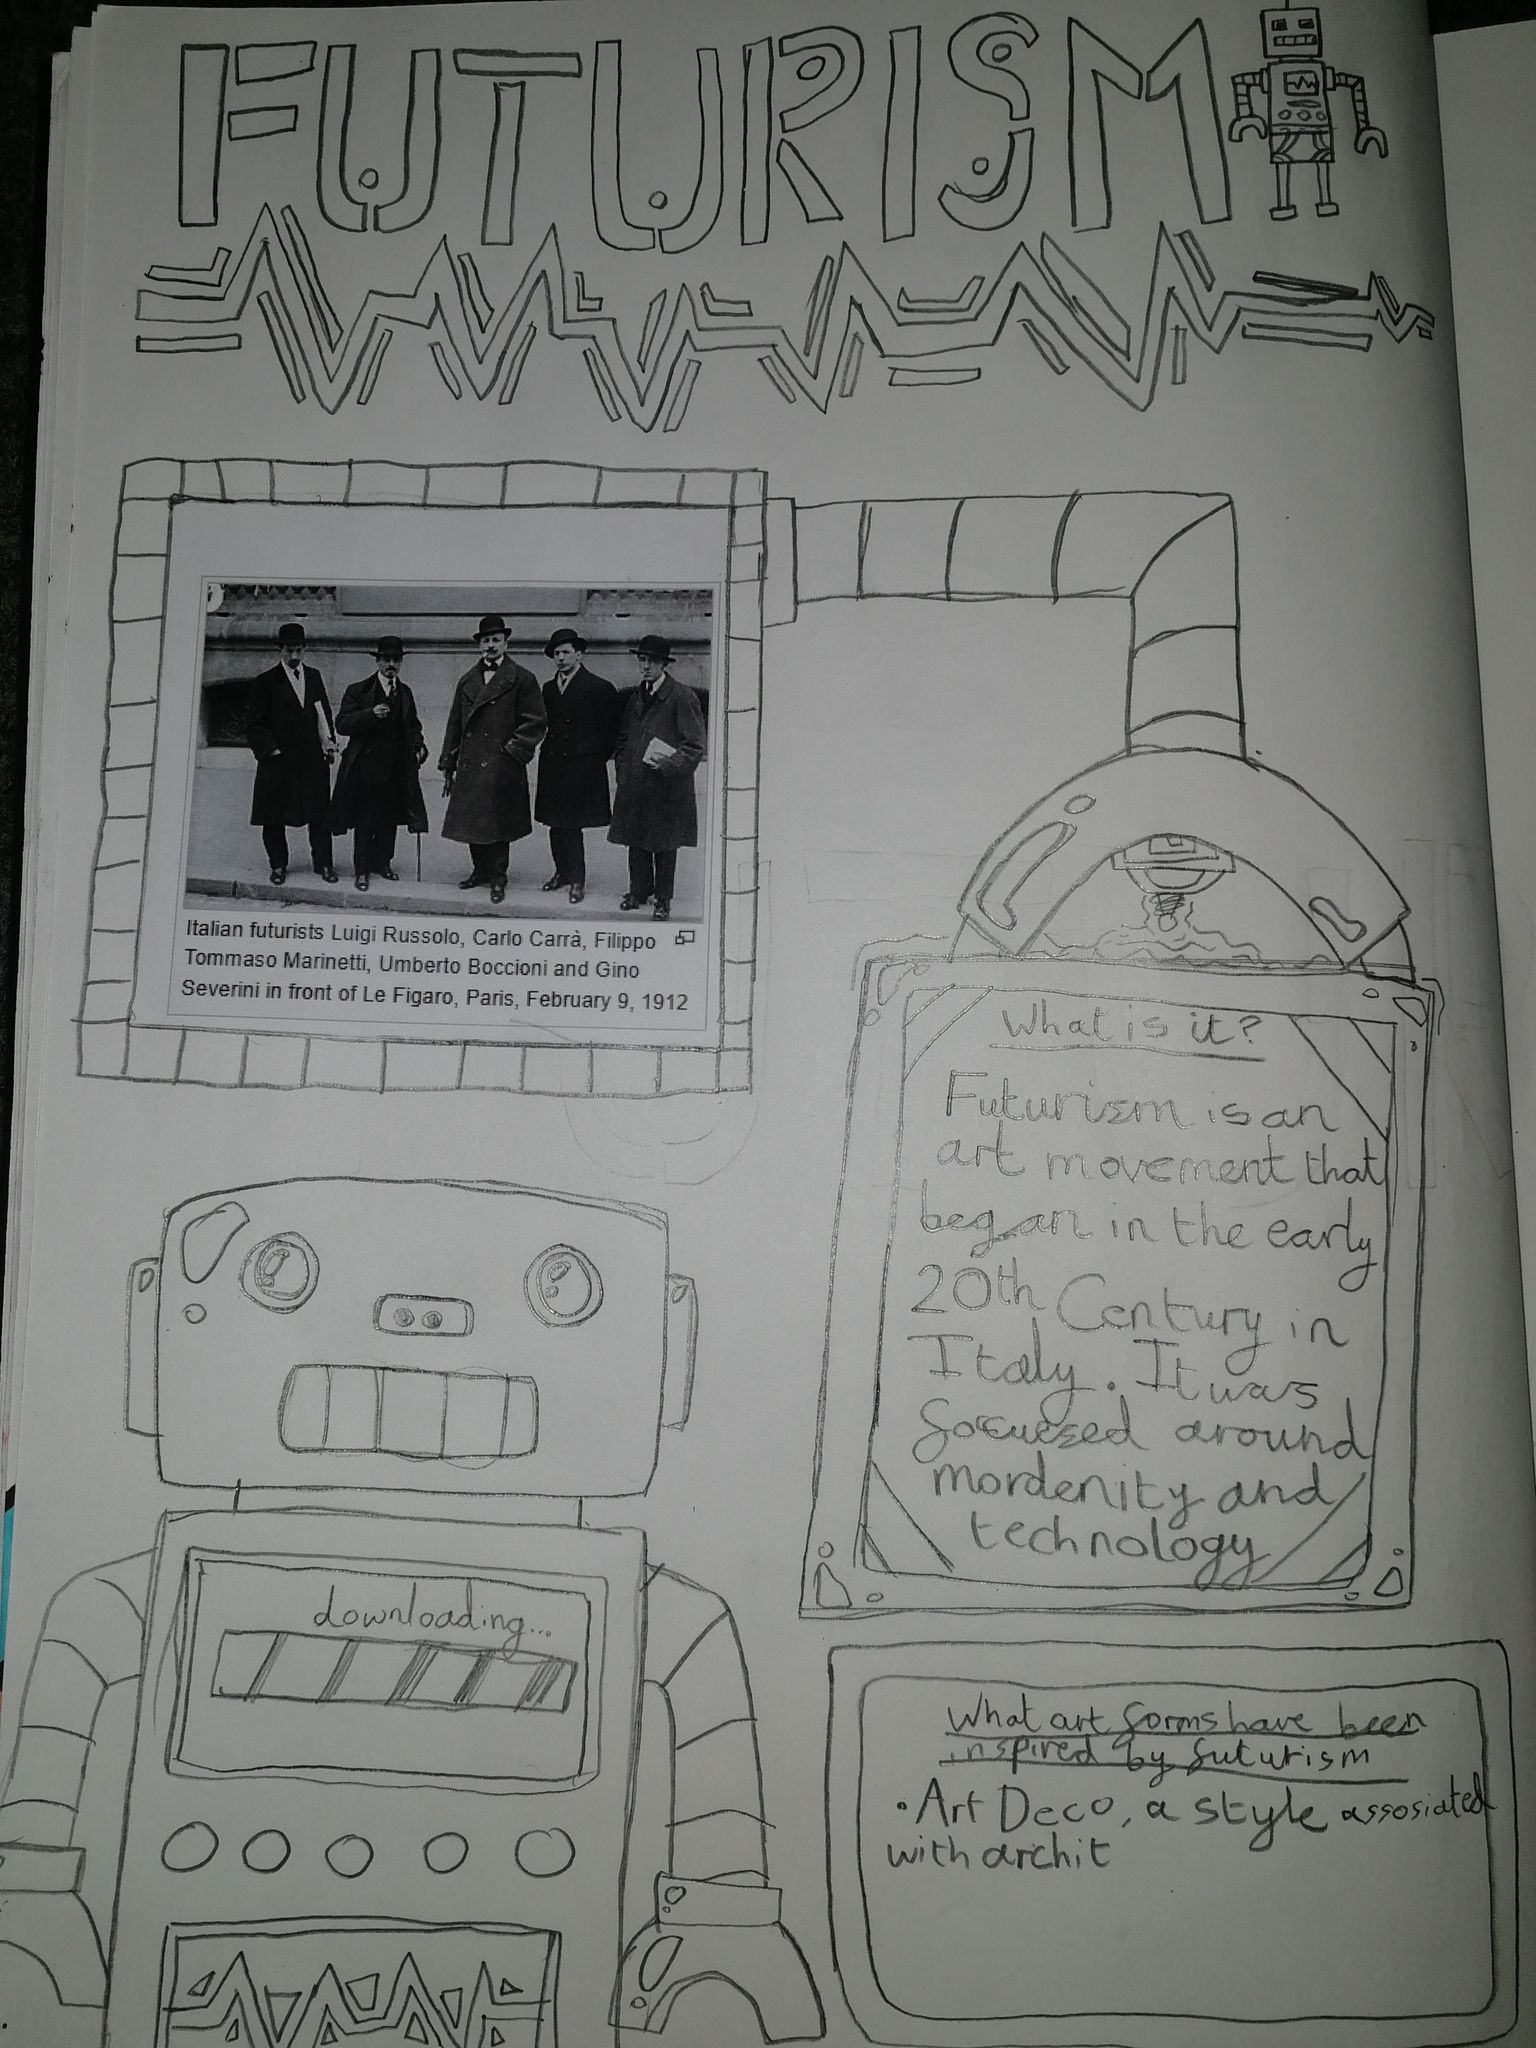 FUTURISM
Italian futurists Luigi Russolo, Carlo Carrà, Filippo
Tommaso Marinetti, Umberto Boccioni and Gino
Severini in front of Le Figaro, Paris, February 9, 1912
What is it?
Futurism is an
art movement that
began in the early
20th Century in
Italy. It was
focuesed around
mordenity and
technology
downloading...
What art forms have been
inspired by futurism
• Art Deco, a style assosiated
with archit